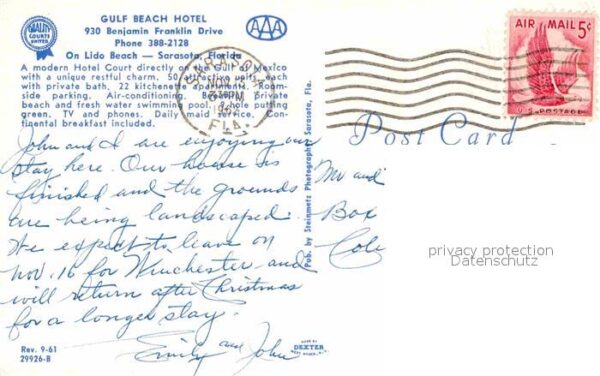 GULF BEACH HOTEL
930 Benjamin Franklin Drive
Phone 388-2128
On Lido Beach — Sarasota, Florida
A modern Hotel Court directly on the Gulf of Mexico
with a unique restful charm. 50 attractive units each
with private bath, 22 kitchenette apartments. Room-
side parking. Air-conditioning. Beautiful private
beach and fresh water swimming pool. 9 hole putting
green. TV and phones. Daily maid service. Con-
tinental breakfast included.
QUALITY
COURTS
UNITED
AAA
SARASOTA
NOV
PM
FLA.
AIR MAIL 5¢
U.S. POSTAGE
Post Card
John and I are enjoying our
stay here. Our house is
finished and the grounds
are being landscaped.
We expect to leave on
Nov. 16 for Winchester and
will return after Christmas
for a longer stay.
Emily and John
Mr and
Box
Cole
privacy protection
Datenschutz
Pub. by Steinmetz Photographer Sarasota, Fla.
Rev. 9-61
29926-B
MADE BY
DEXTER
WEST NYACK, N.Y.